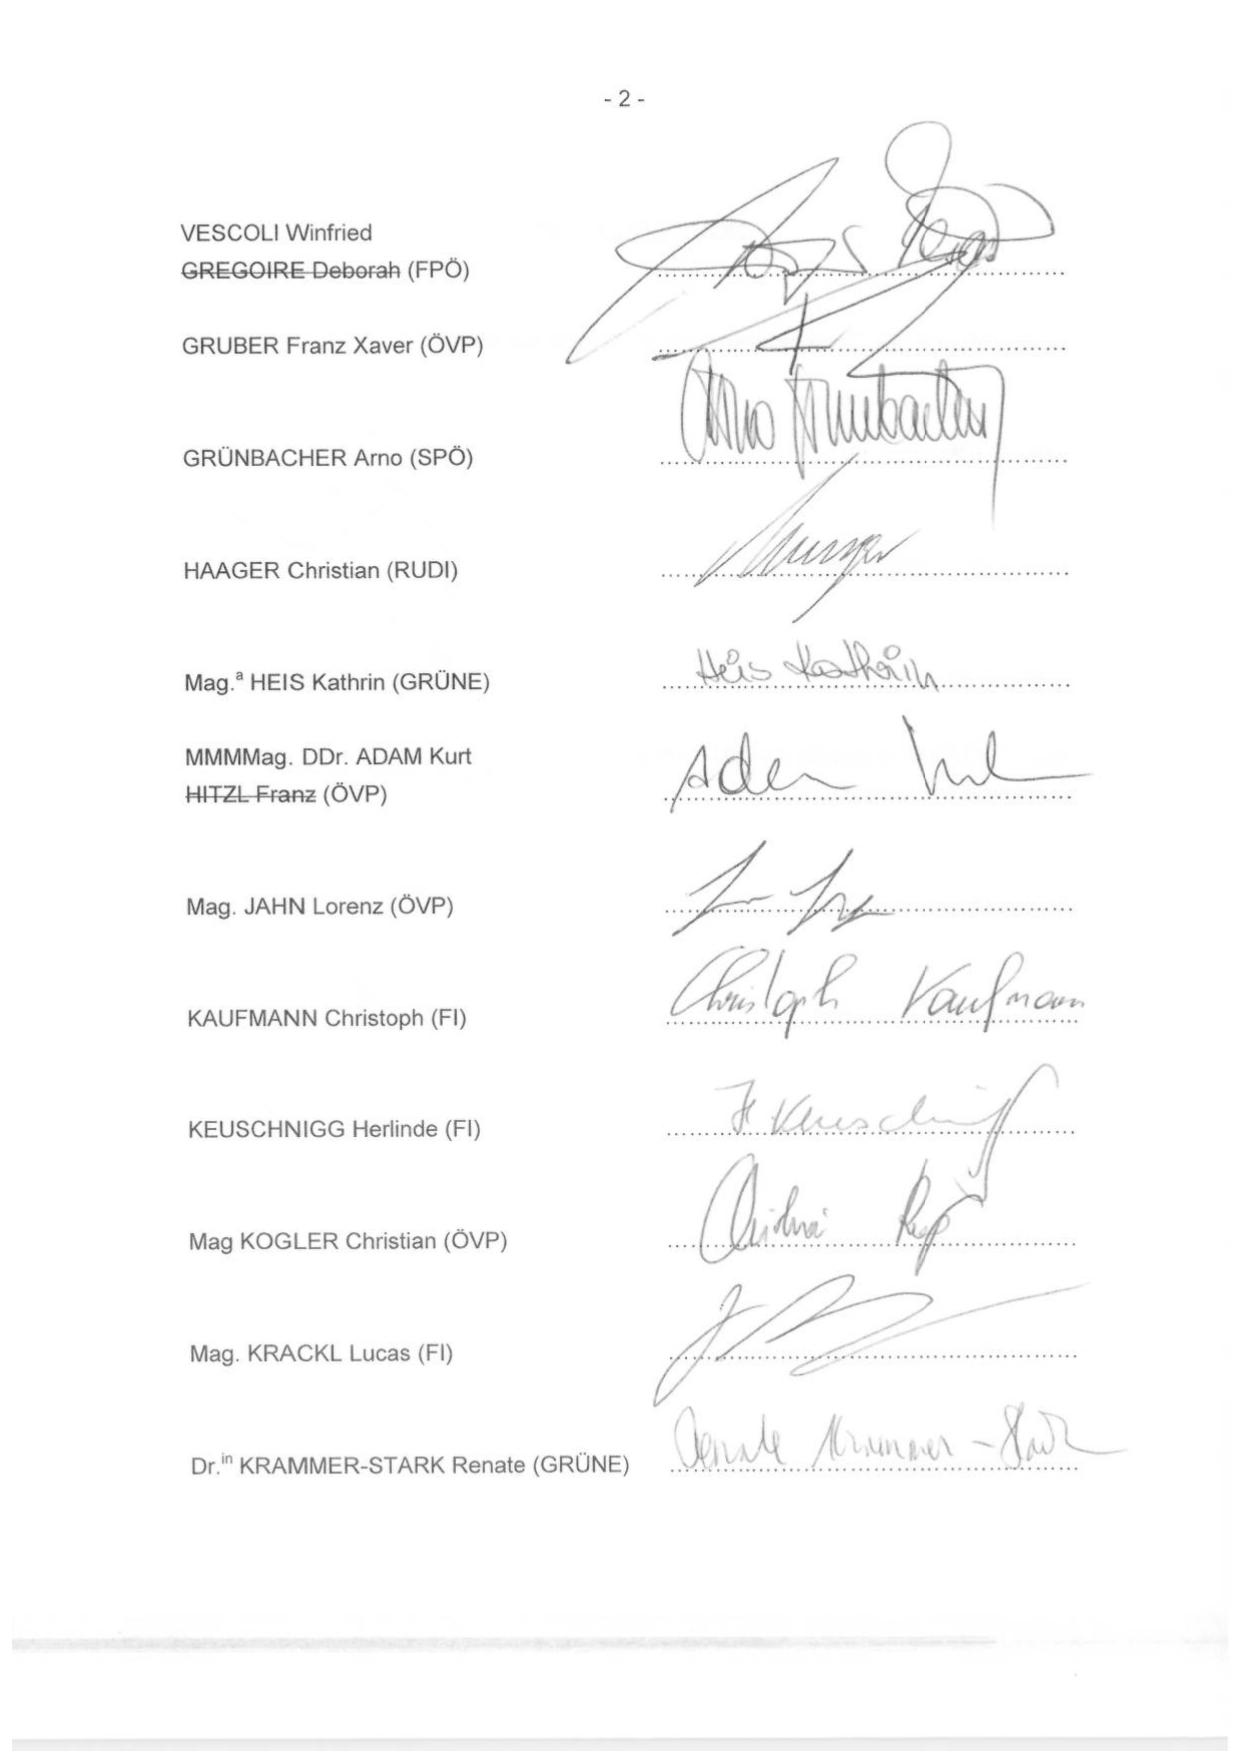 - 2 -
VESCOLI Winfried
GREGOIRE Deborah (FPÖ)
GRUBER Franz Xaver (ÖVP)
GRÜNBACHER Arno (SPÖ) Arno Grünbacher
HAAGER Christian (RUDI)
Mag.ª HEIS Kathrin (GRÜNE) Heis Kathrin
MMMMag. DDr. ADAM Kurt
HITZL Franz (ÖVP) Adam Kurt
Mag. JAHN Lorenz (ÖVP)
KAUFMANN Christoph (FI) Christoph Kaufmann
KEUSCHNIGG Herlinde (FI) H Keuschnigg
Mag KOGLER Christian (ÖVP) Christian
Mag. KRACKL Lucas (FI)
Dr.ⁱⁿ KRAMMER-STARK Renate (GRÜNE) Renate Krammer-Stark